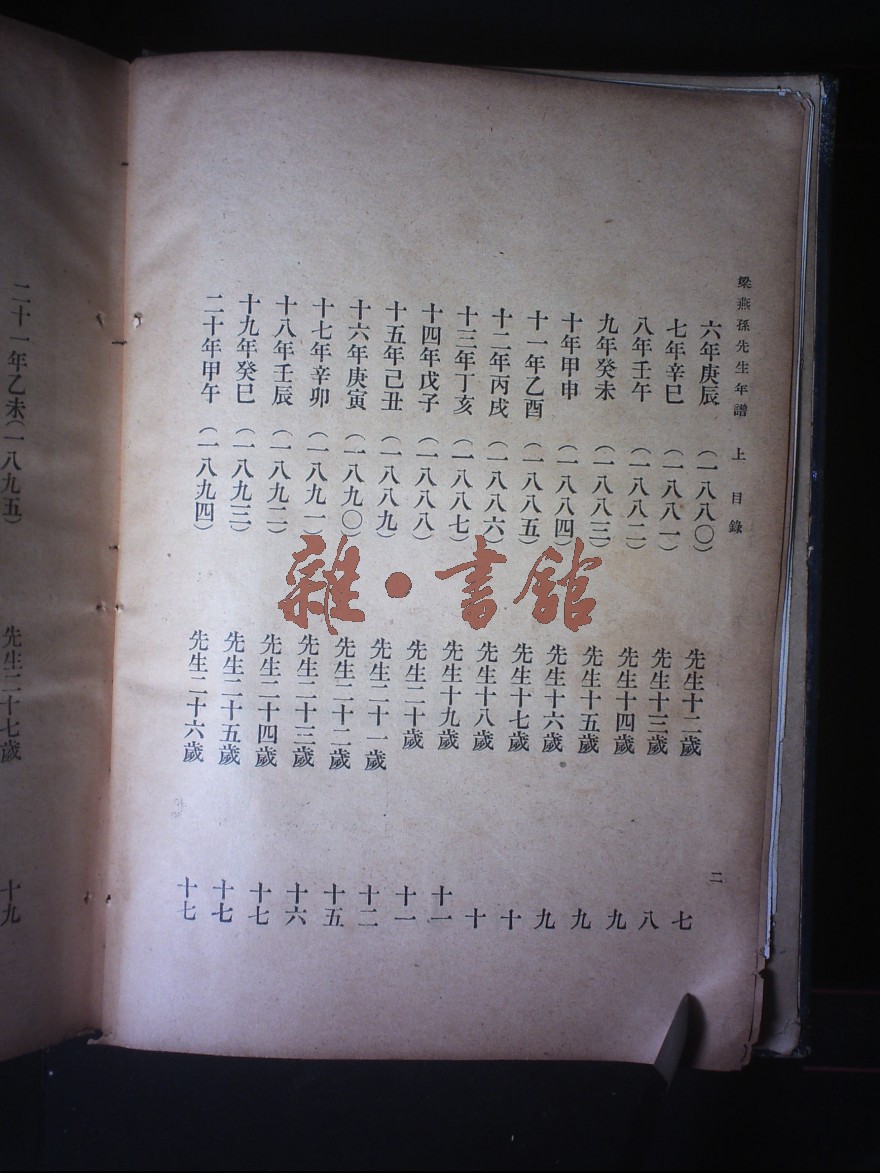 梁燕孫先生年譜 上 目錄
二
六年庚辰(一八八〇) 先生十二歲 七
七年辛巳(一八八一) 先生十三歲 八
八年壬午(一八八二) 先生十四歲 九
九年癸未(一八八三) 先生十五歲 九
十年甲申(一八八四) 先生十六歲 九
十一年乙酉(一八八五) 先生十七歲 十
十二年丙戌(一八八六) 先生十八歲 十
十三年丁亥(一八八七) 先生十九歲 十一
十四年戊子(一八八八) 先生二十歲 十一
十五年己丑(一八八九) 先生二十一歲 十二
十六年庚寅(一八九〇) 先生二十二歲 十五
十七年辛卯(一八九一) 先生二十三歲 十六
十八年壬辰(一八九二) 先生二十四歲 十七
十九年癸巳(一八九三) 先生二十五歲 十七
二十年甲午(一八九四) 先生二十六歲 十七
二十一年乙未(一八九五) 先生二十七歲 十九
雜·書館